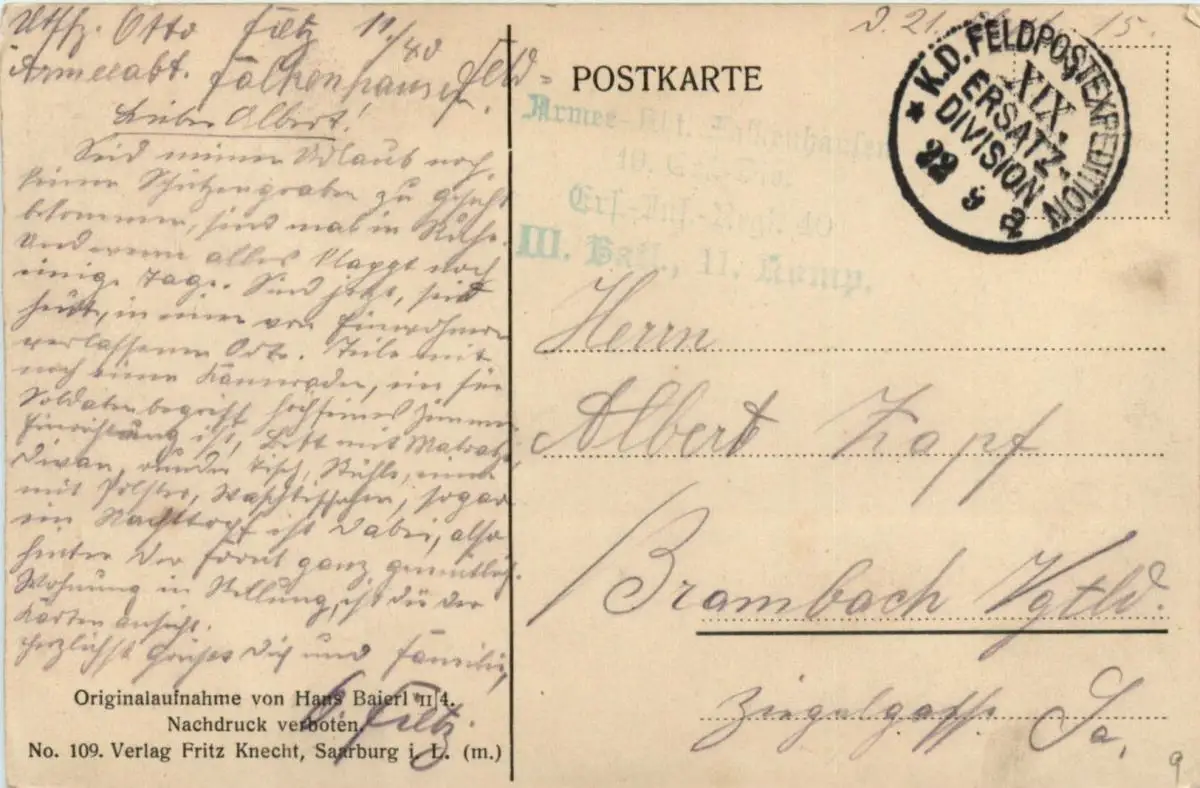 Utffz. Otto Fietz 11/40
Armeeabt. Falkenhausen Feld=
D. 21. 15.
Lieber Albert!
Seid meinem Urlaub noch
keinen Schützengraben zu Gesicht
bekommen, sind mal in Ruhe.
Und wenn alles klappt noch
einige Tage. Sind jetzt, seid
heute, in einem von Einwohnern
verlassenen Orte. Teile mit
noch einem Kameraden, ein für
Soldatenbegriff hochfeines Zimmer.
Einrichtung ist, Bett mit Matratze,
Divan, runder Tisch, Stühle,
mit Polster, Waschtischchen, sogar
ein Nachttopf ist dabei, also
hinter der Front ganz gemütlich.
Wohnung in Stellung, ist die der
Karten ansicht.
Herzlichst Grüßt Dich und Familie,
O. Fietz.
Originalaufnahme von Hans Baierl II/4.
Nachdruck verboten
No. 109. Verlag Fritz Knecht, Saarburg i. L. (m.)
POSTKARTE
Armee-Abt. Falkenhausen
19. Ers.-Div.
Ers.-Inf.-Regt. 40
III. Batl., 11. Komp.
* K.D. FELDPOSTEXPEDITION
XIX.
ERSATZ-
DIVISION
22 9
Herrn
Albert Zapf
Brambach Vgtld.
Ziegelgasse Sa.
9